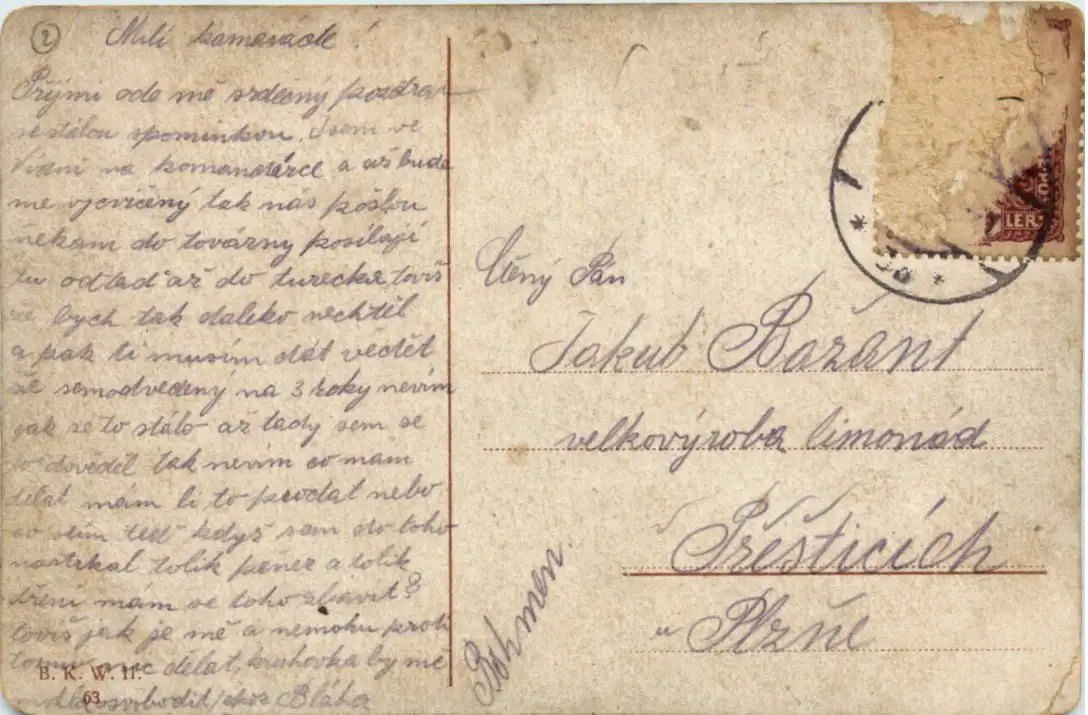 2
Milí kamaráde
Přijmi ode mě srdečný pozdrav
se stálou spomínkou. Jsem ve
Vídni na komandýrce a až bude
me vycvičený tak nás pošlou
někam do továrny posílají
tu odtad až do turecka toviš
že bych tak daleko nechtěl
a pak ti musím dát vědět
že semodvedený na 3 roky nevím
jak se to stálo až tady sem se
to dověděl tak nevím co mám
dělat mám li to prodat nebo
co vím teď kdyš sem do toho
nastrkal tolik peněz a tolik
dření mám se toho zbavit?
toviš jak je mě a nemohu proti
tomu nic dělat. kruhovka by mě
mohla osvobodit Bláha
B. K. W. II.
63
LER
Ctěný Pán
Jakub Bažant
velkovýroba limonád
Přěšticích
u Plzně
Böhmen.